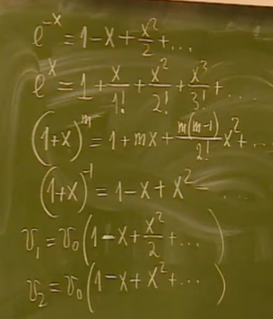 e^{-x} = 1 - x + \frac{x^2}{2} + ...
e^x = 1 + \frac{x}{1!} + \frac{x^2}{2!} + \frac{x^3}{3!} + ....
(1+x)^m = 1 + mx + \frac{m(m-1)}{2!} x^2 + ...
(1+x)^{-1} = 1 - x + x^2 - ....
v_1 = v_0 (1 - x + \frac{x^2}{2} + ...)
v_2 = v_0 (1 - x + x^2 + ...)